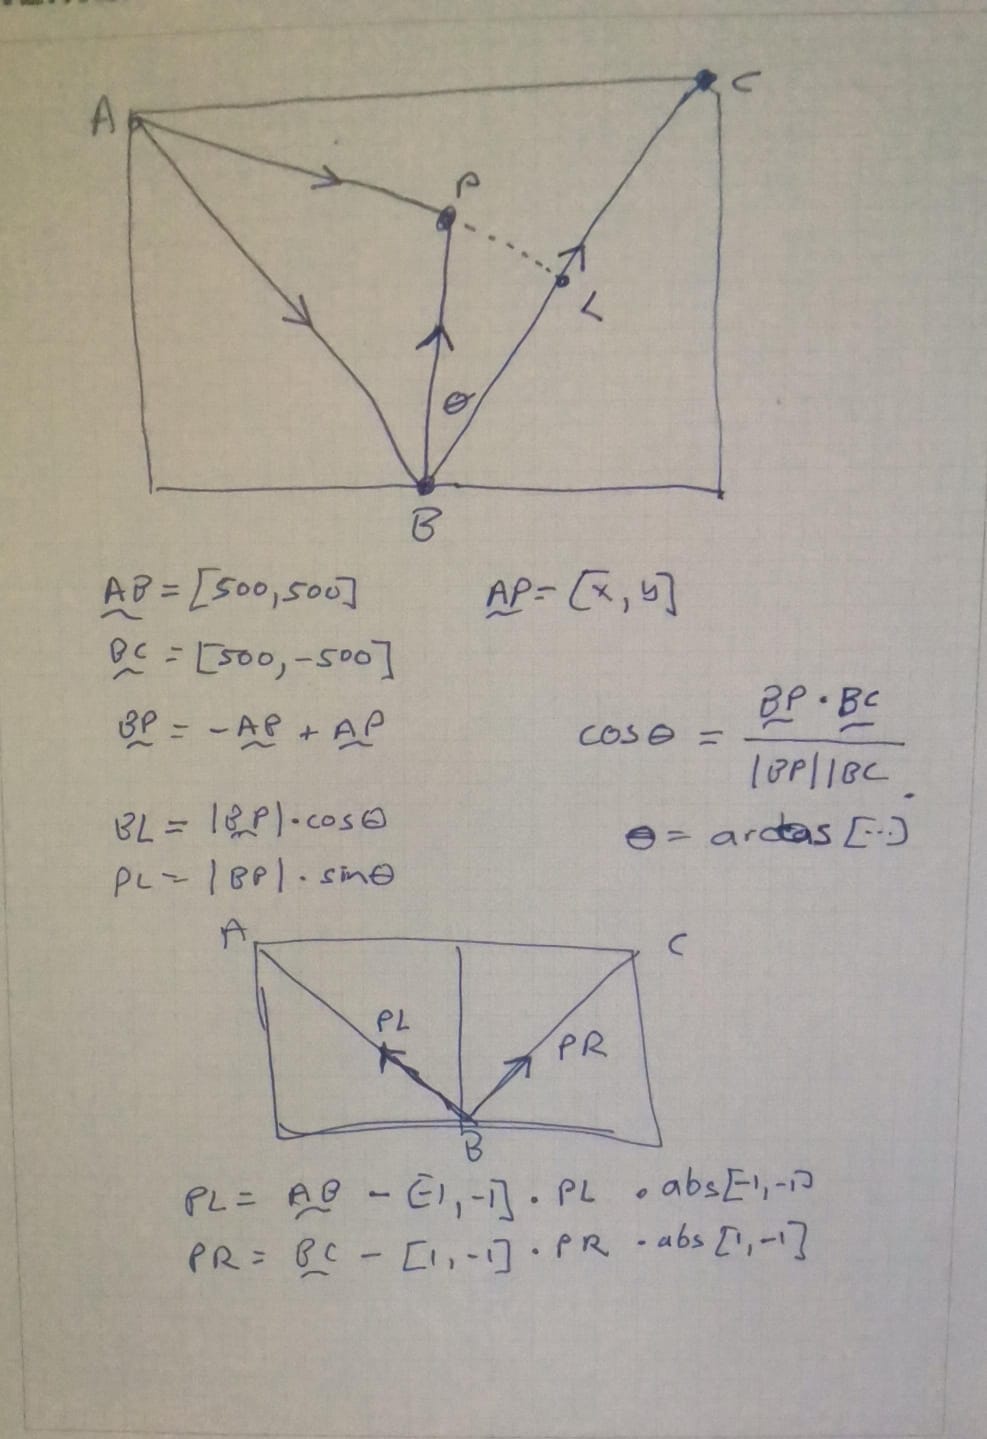 A
C
P
L
θ
B
AB = [500,500]
AP = [x, y]
BC = [500,-500]
BP = -AB + AP
cosθ = BP · BC / |BP||BC
BL = |BP|·cosθ
θ = arccos [...]
PL = |BP| · sinθ
A
C
PL
PR
B
PL = AB - [-1,-1] · PL · abs[-1,-1]
PR = BC - [1,-1] · PR · abs[1,-1]